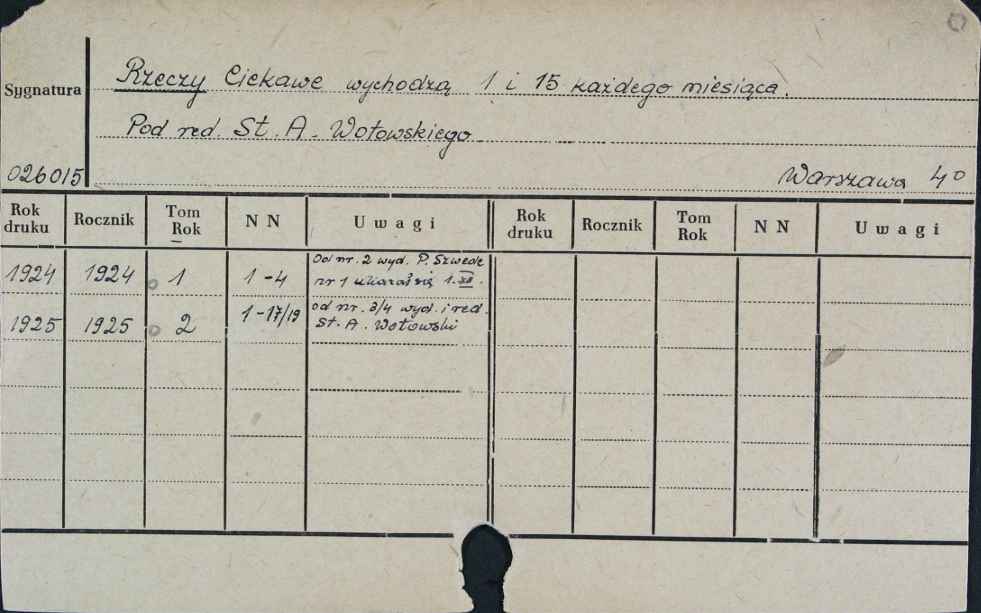 Sygnatura
026015
Rzeczy Ciekawe wychodzą 1 i 15 każdego miesiąca.
Pod red St. A. Wotowskiego
Warszawa 4°
Rok druku Rocznik Tom Rok N N U w a g i Rok druku Rocznik Tom Rok N N U w a g i
1924 1924 1 1-4 Od nr. 2 wyd. P. Szwede
nr 1 ukazał się 1.XII.
1925 1925 2 1-17/19 od nr. 3/4 wyd. i red.
St. A. Wotowski